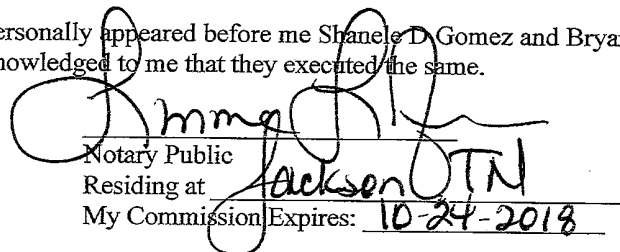 ersonally appeared before me Shanele D Gomez and Bryan
nowledged to me that they executed the same.
Notary Public
Residing at Jackson TN
My Commission Expires: 10-24-2018